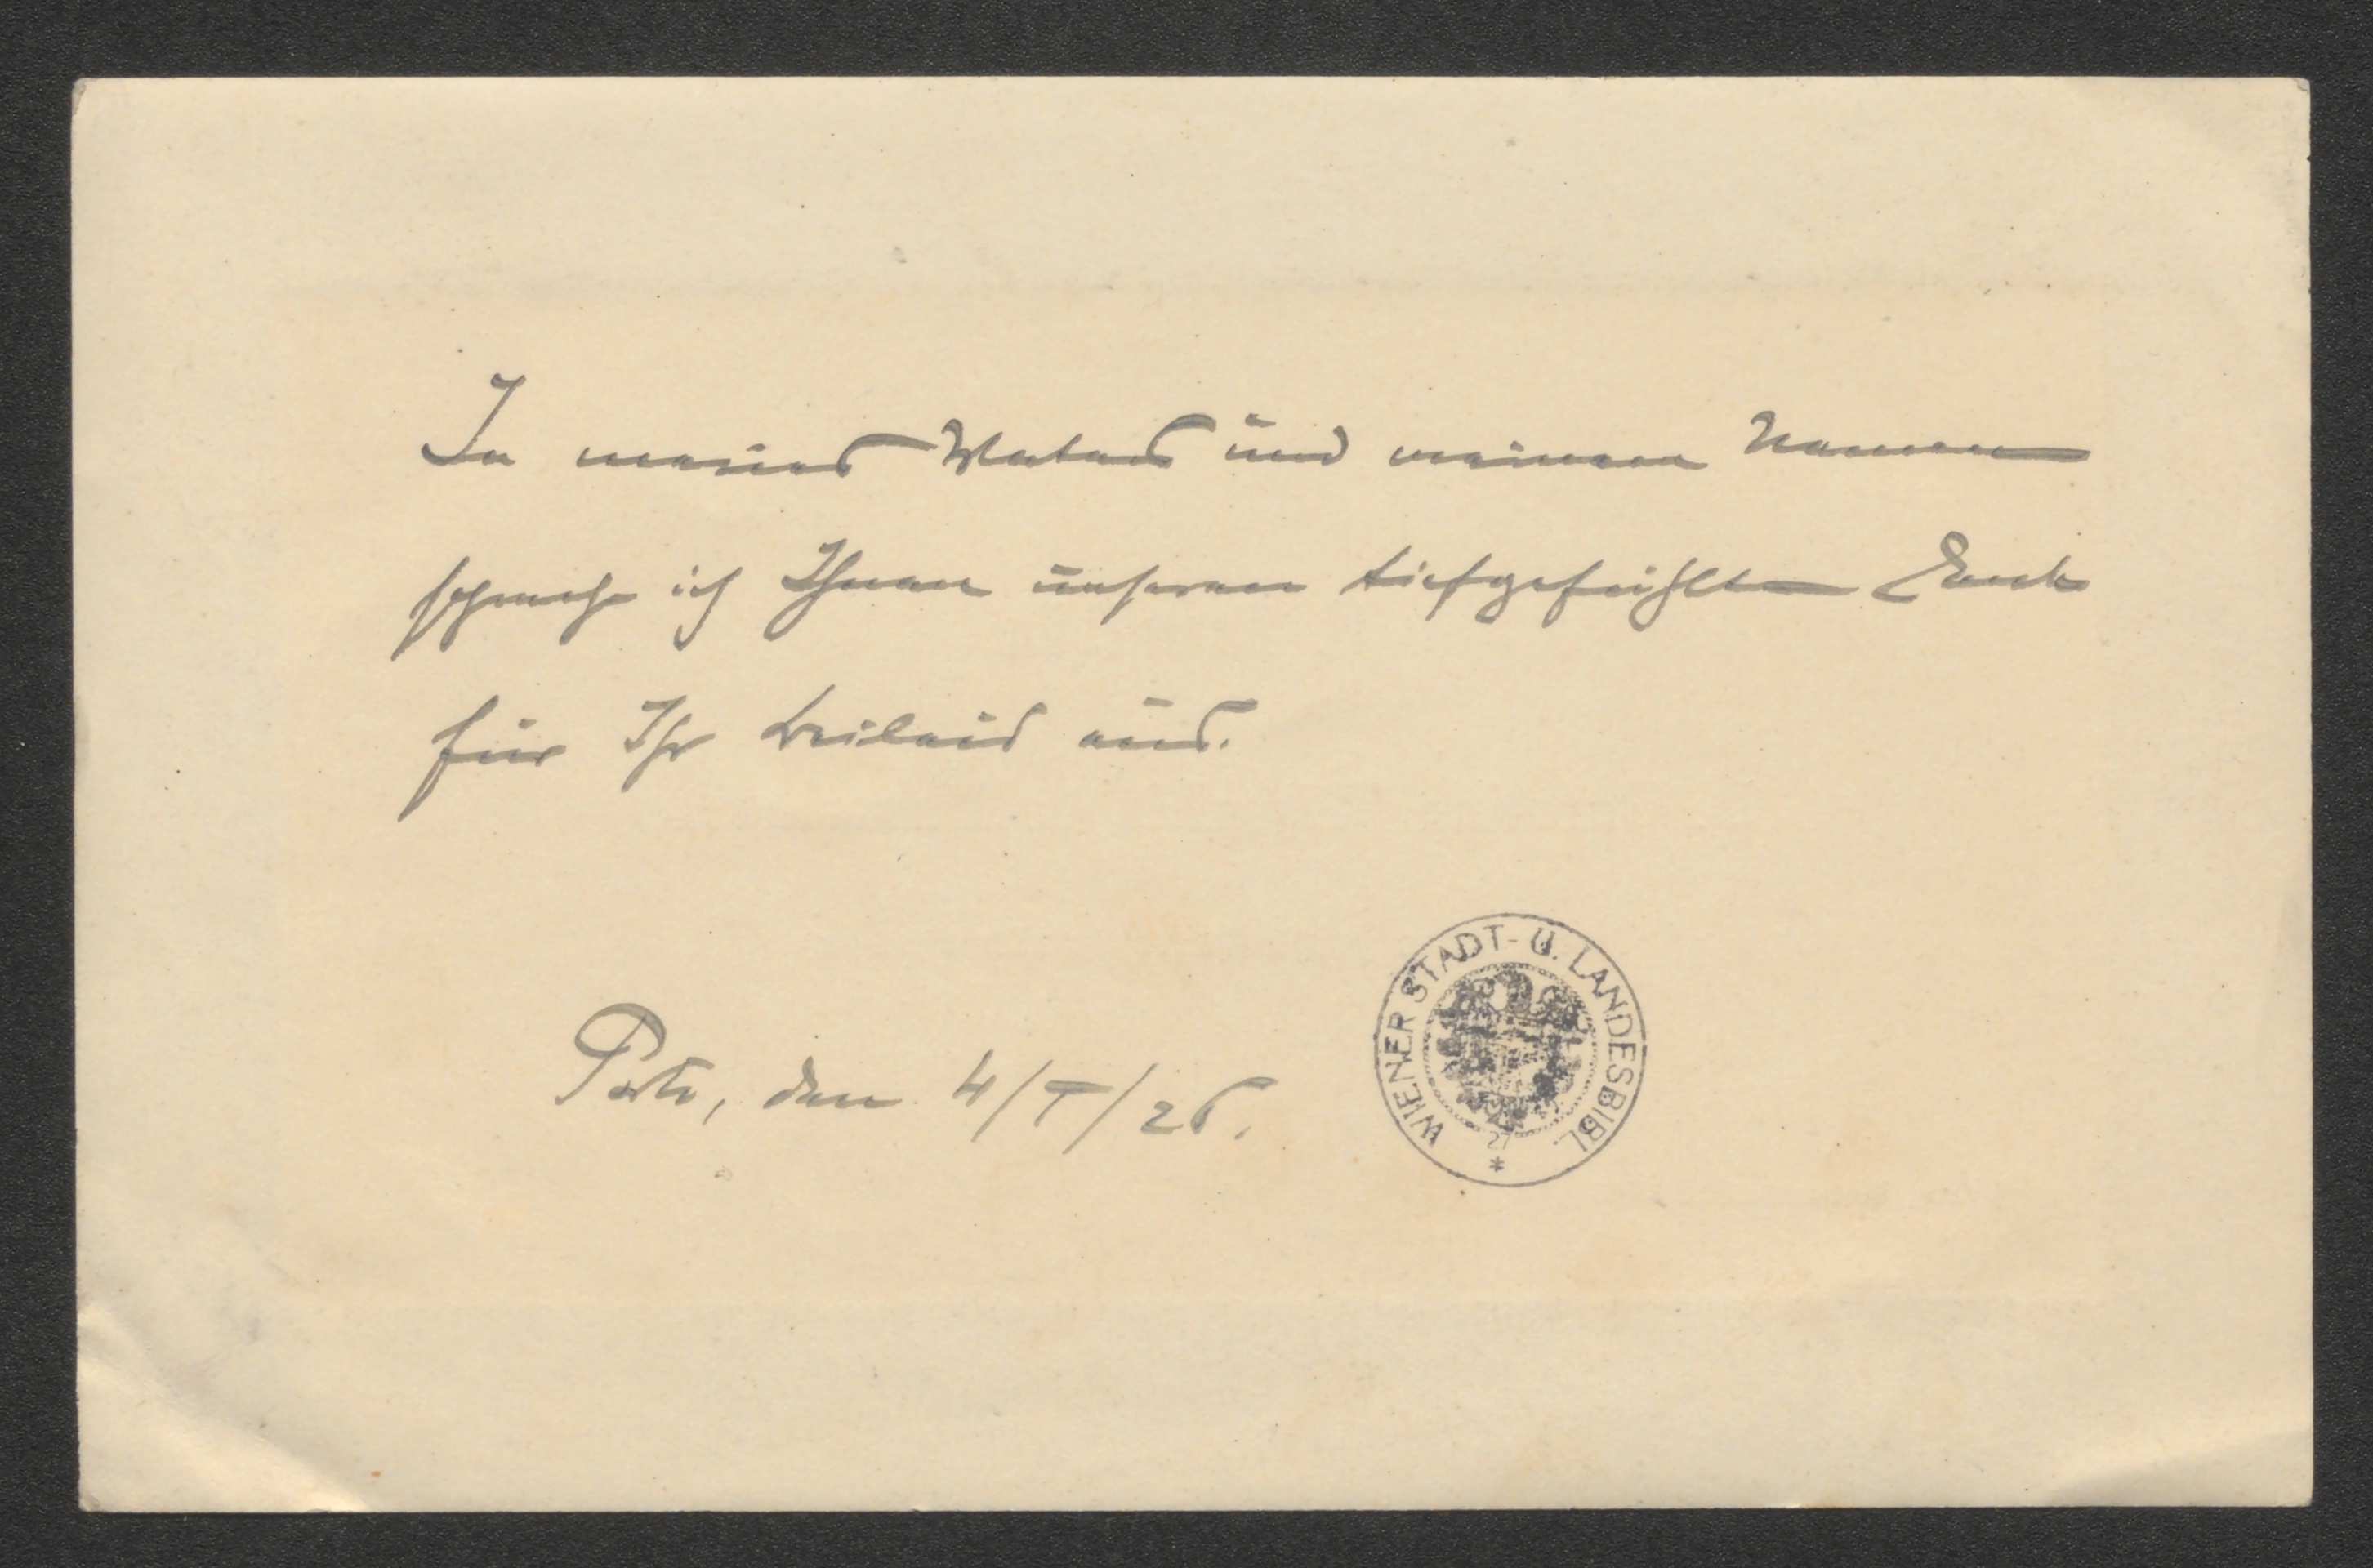 In meines Vaters und meinem Namen
spreche ich Ihnen unseren tiefgefühlten Dank
für Ihr Beileid aus.
Porto, den 4/I/26.
WIENER STADT- U. LANDESBIBL.